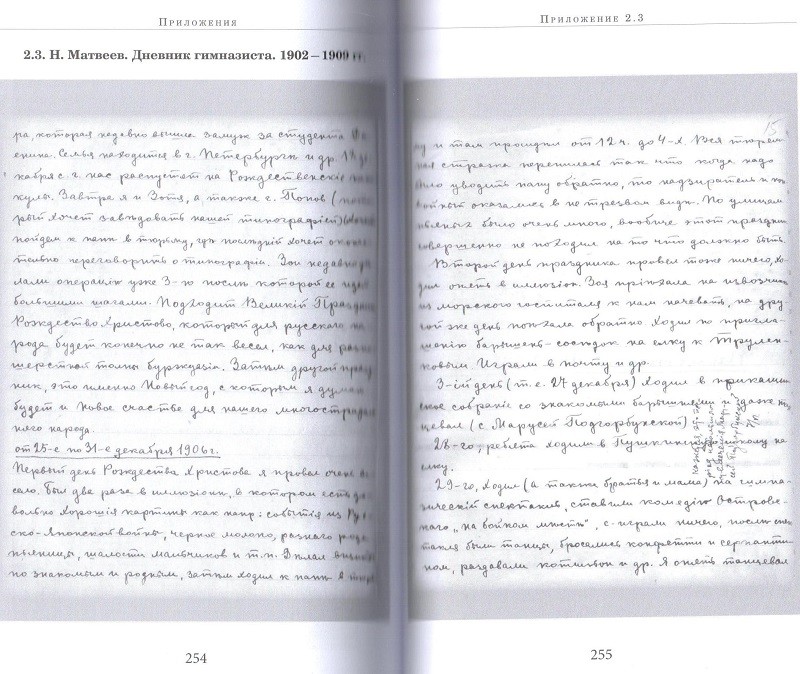 Приложения
2.3. Н. Матвеев. Дневник гимназиста. 1902–1909 гг.
ра, которая недавно вышла замуж за студента
Семья находится в г. Петербурге и др.
кабря с. г. нас распустят на Рождественскіе
кулы. Завтра я и Зотя, а также с. Попов
рый хочет завѣдовать нашей типографіей)
пойдем к папѣ в тюрьму, где послѣдній хочет
тельно переговорить о типографіи. Зои недавно
лали операцію уже 3-ю послѣ которой ее
большими шагами. Подходит Великій
Рождество Христово, который для русскаго на
рода будет конечно не так весел, как для
шерстной толпы буржуазіи. Затѣм другой
ник, это именно Новый год, с которым я думаю
будет и новое счастье для нашего многострадаль
наго народа.
от 25-е по 31-е декабря 1906 г.
Первый день Рождества Христова я провел очень ве
село. Был два раза в иллюзіон, в котором есть до
вольно хорошія картины как напр: событія из Рус
ско-Японской войны, черное молоко, разнаго рода
пьяницы, шалости мальчиков и т.п. Дѣлал визиты
по знакомым и родным, затѣм ходил к папѣ в тюрь
254
Приложение 2.3
15
му и там просидѣл от 12 ч. до 4-х. Вся тюрем
ная стража перепилась так что когда надо
было уводить папу обратно, то надзиратель и
оказались в не трезвом видѣ. По улицам
пьяных было очень много, вообще этот праздник
совершенно не походил на то что должно быть.
Второй день праздника провел тоже ничего, хо
дил опять в иллюзіон. Зоя пріѣхала на извощикѣ
из морского госпиталя к нам ночевать, на дру
гой же день поѣхала обратно. Ходил по пригла
шенію барышень-соседок на елку к Трулен-
ковым. Играли в почту и др.
3-ій день (т. е. 27 декабря) ходил в прикащи
ское собраніе со знакомыми барышнями и даже тан
цевал (с Марусей Подгорбунской)
28-го; ребята ходили в Пушкинскую школу на
елку.
29-го, ходил (а также братья и мама) на гимна-
зическій спектакль, ставили комедію Островс
каго „на бойком мѣстѣ", с-играли ничего, послѣ спек
такля были танцы, бросались конфетти и серпанти
ном, раздавали котильон и др. Я опять танцевал
255